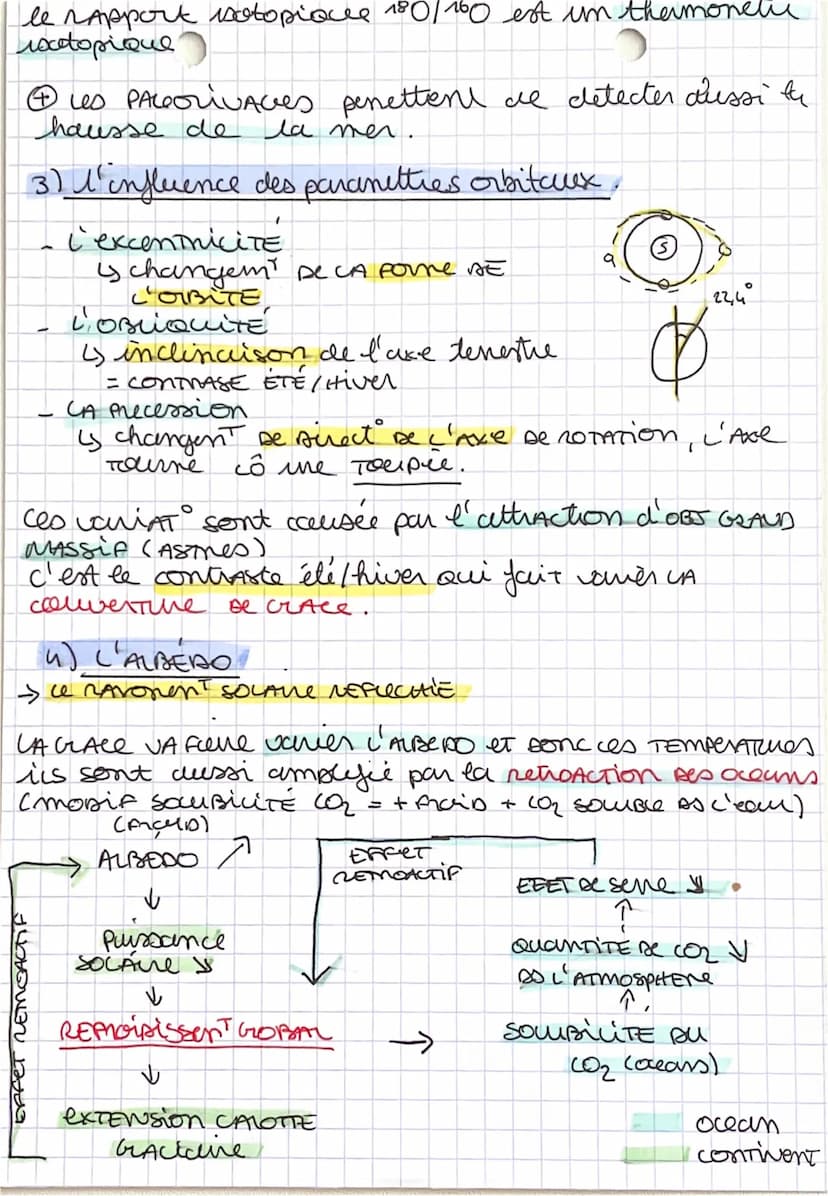 le rapport isotopique 180/160 est un thermometre
isotopique
⊕ les PALEORIVAGES permettent de detecter aussi la
hausse de la mer.
3) l'influence des paramètres orbitaux.
- l'excentricité
↳ changemT DE LA FORME DE
L'ORBITE
S
- L'OBLIQUITÉ
22,4°
↳ inclinaison de l'axe terrestre
= CONTRASE ÉTÉ/Hiver
- LA Precession
↳ changemT DE Direct° DE L'AXE DE ROTATION, L'AXE
TOURNE cô une TOUPIE.
Ces variAT° sont causée par l'attraction d'OBJ GRAND
MASSIF (ASTRES)
c'est le contraste été/hiver qui fait varier LA
couverture DE GLACE.
4) L'ALBÉDO
→ le RAYONENT SOLAIRE REFLECHIE
LA GLACE VA Faire varier l'ALBEDO et donc les TEMPERATURES
ils sont aussi amplifié par la retroaction des oceans
(modif SOLUBILITÉ CO2 = + froid + CO2 soluble ds l'eau)
ALBEDO ↗
↓
Puissance
SOLAIRE ↘
↓
REFROIDISSENT GLOBAL
→
↓
EXTENSION CALOTTE
Glaciaire
EFFET RETROACTIF
EFFET
RETROACTIF
EFFET DE serre ↘
↑
QUANTITÉ DE CO2 ↓
DS L'ATMOSPHERE
↑
SOLUBILITE DU
CO2 (oceans)
ocean
continent